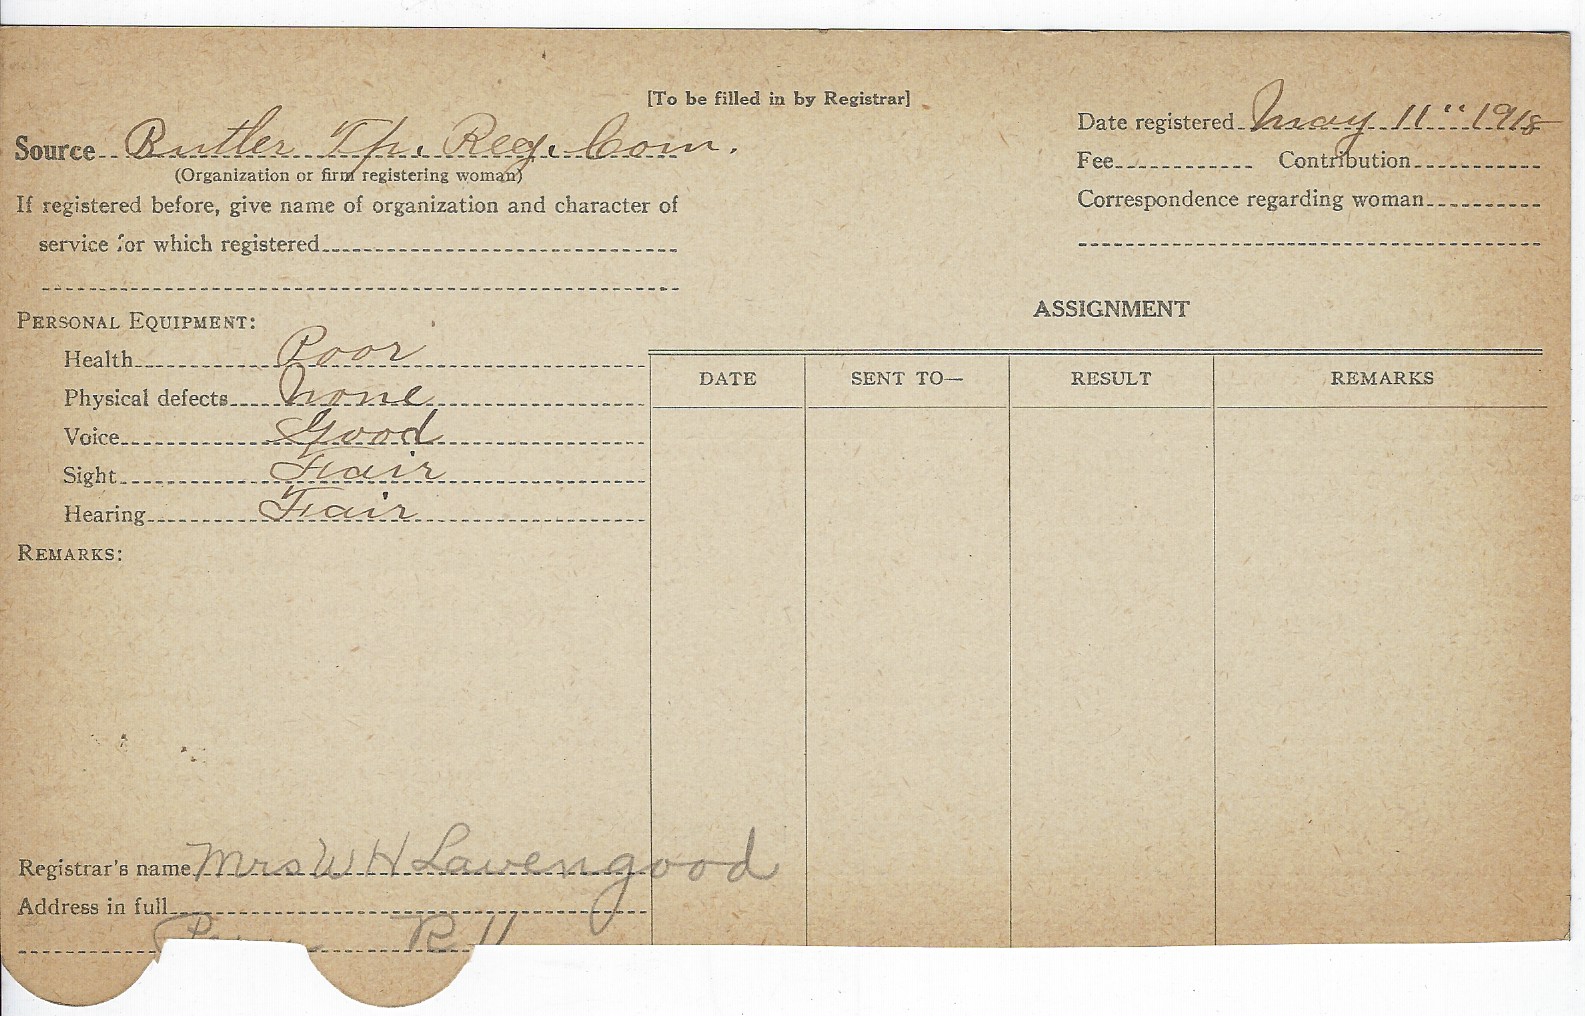 [To be filled in by Registrar]
Source Butler Tp. Reg. Com.
(Organization or firm registering woman)
If registered before, give name of organization and character of
service for which registered
Date registered May 11" 1918
Fee Contribution
Correspondence regarding woman
PERSONAL EQUIPMENT:
Health Poor
Physical defects None
Voice Good
Sight Fair
Hearing Fair
REMARKS:
ASSIGNMENT
DATE SENT TO— RESULT REMARKS
Registrar's name Mrs W H Lavengood
Address in full
R 11